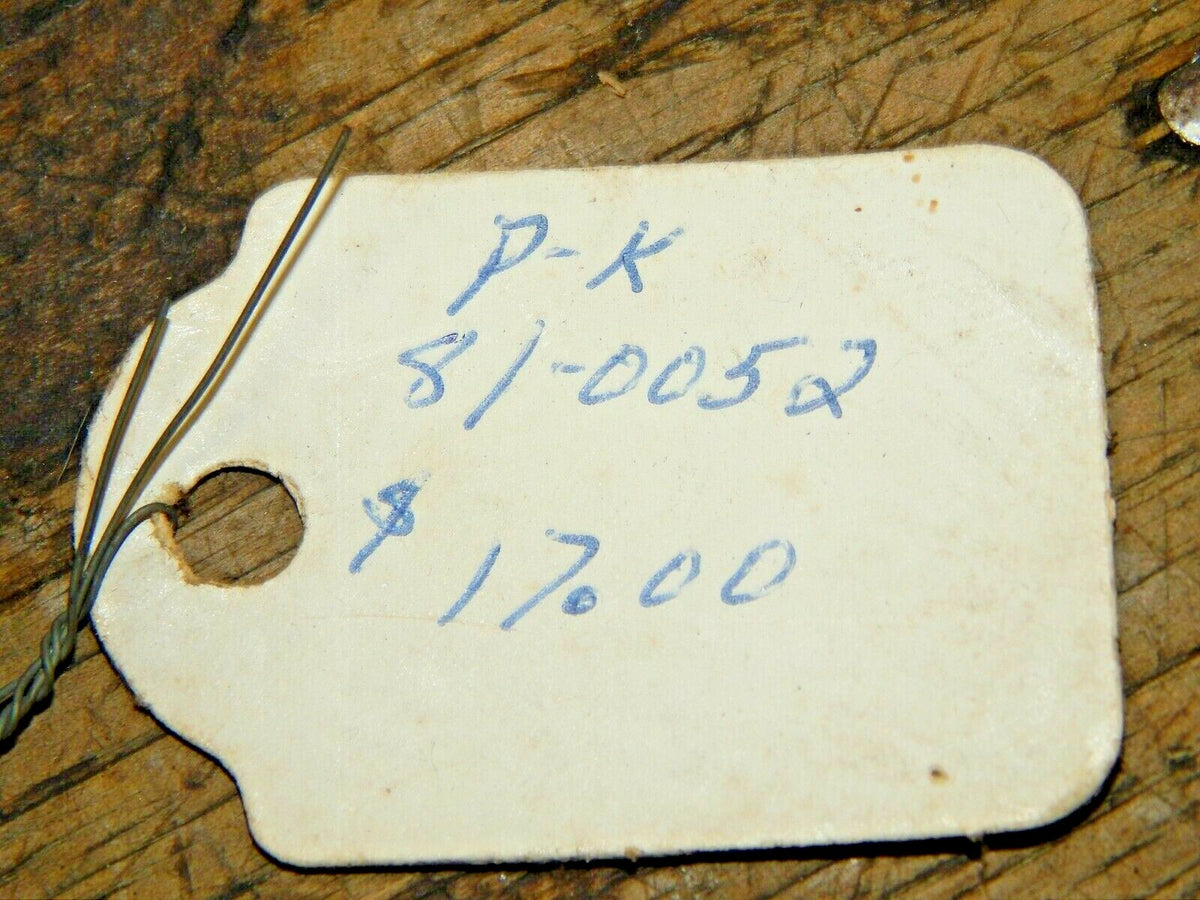 P-K
81-0052
$ 17.00